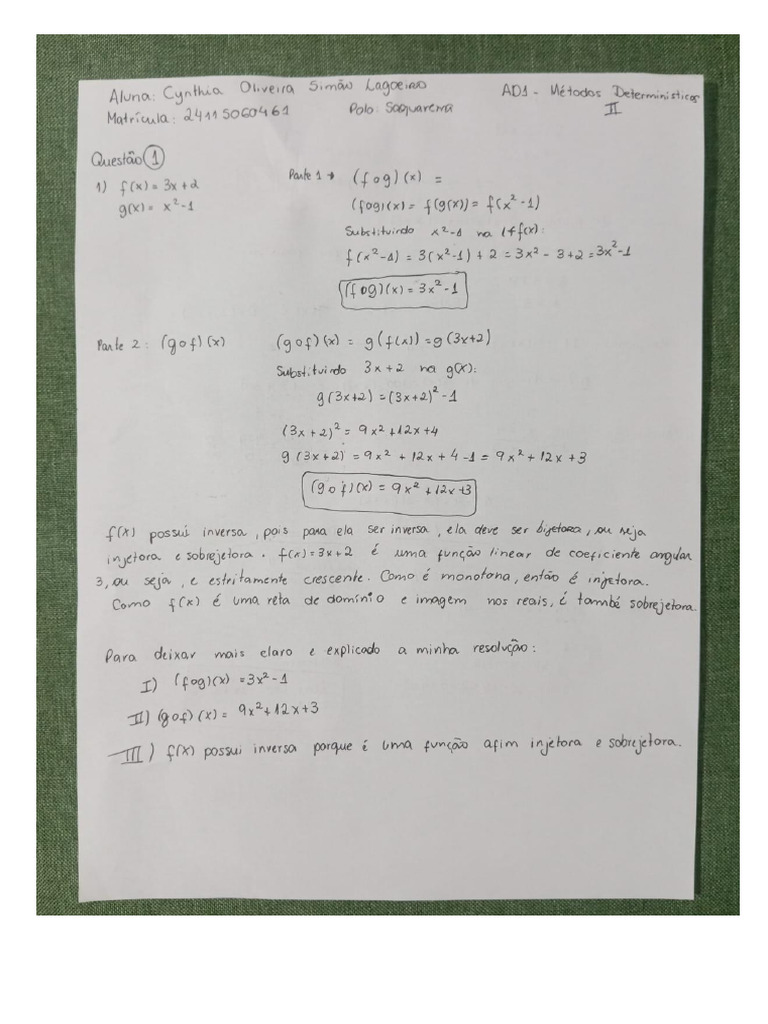 Aluna: Cynthia Oliveira Simão Lagoeiro
AD1 - Métodos Deterministicos II
Matrícula: 24115060461
Polo: Saquarema
Questão 1
1) f(x) = 3x + 2
g(x) = x² - 1
Parte 1 → (fog)(x) =
(fog)(x) = f(g(x)) = f(x² - 1)
Substituindo x² - 1 na f(x):
f(x² - 1) = 3(x² - 1) + 2 = 3x² - 3 + 2 = 3x² - 1
(fog)(x) = 3x² - 1
Parte 2: (gof)(x)
(gof)(x) = g(f(x)) = g(3x+2)
Substituindo 3x + 2 na g(x):
g(3x+2) = (3x+2)² - 1
(3x + 2)² = 9x² + 12x + 4
g(3x+2) = 9x² + 12x + 4 - 1 = 9x² + 12x + 3
(gof)(x) = 9x² + 12x + 3
f(x) possui inversa, pois para ela ser inversa, ela deve ser bijetora, ou seja
injetora e sobrejetora. f(x) = 3x + 2 é uma função linear de coeficiente angular
3, ou seja, e estritamente crescente. Como é monotona, então é injetora.
Como f(x) é uma reta de domínio e imagem nos reais, é também sobrejetora.
Para deixar mais claro e explicado a minha resolução:
I) (fog)(x) = 3x² - 1
II) (gof)(x) = 9x² + 12x + 3
III) f(x) possui inversa porque é uma função afim injetora e sobrejetora.